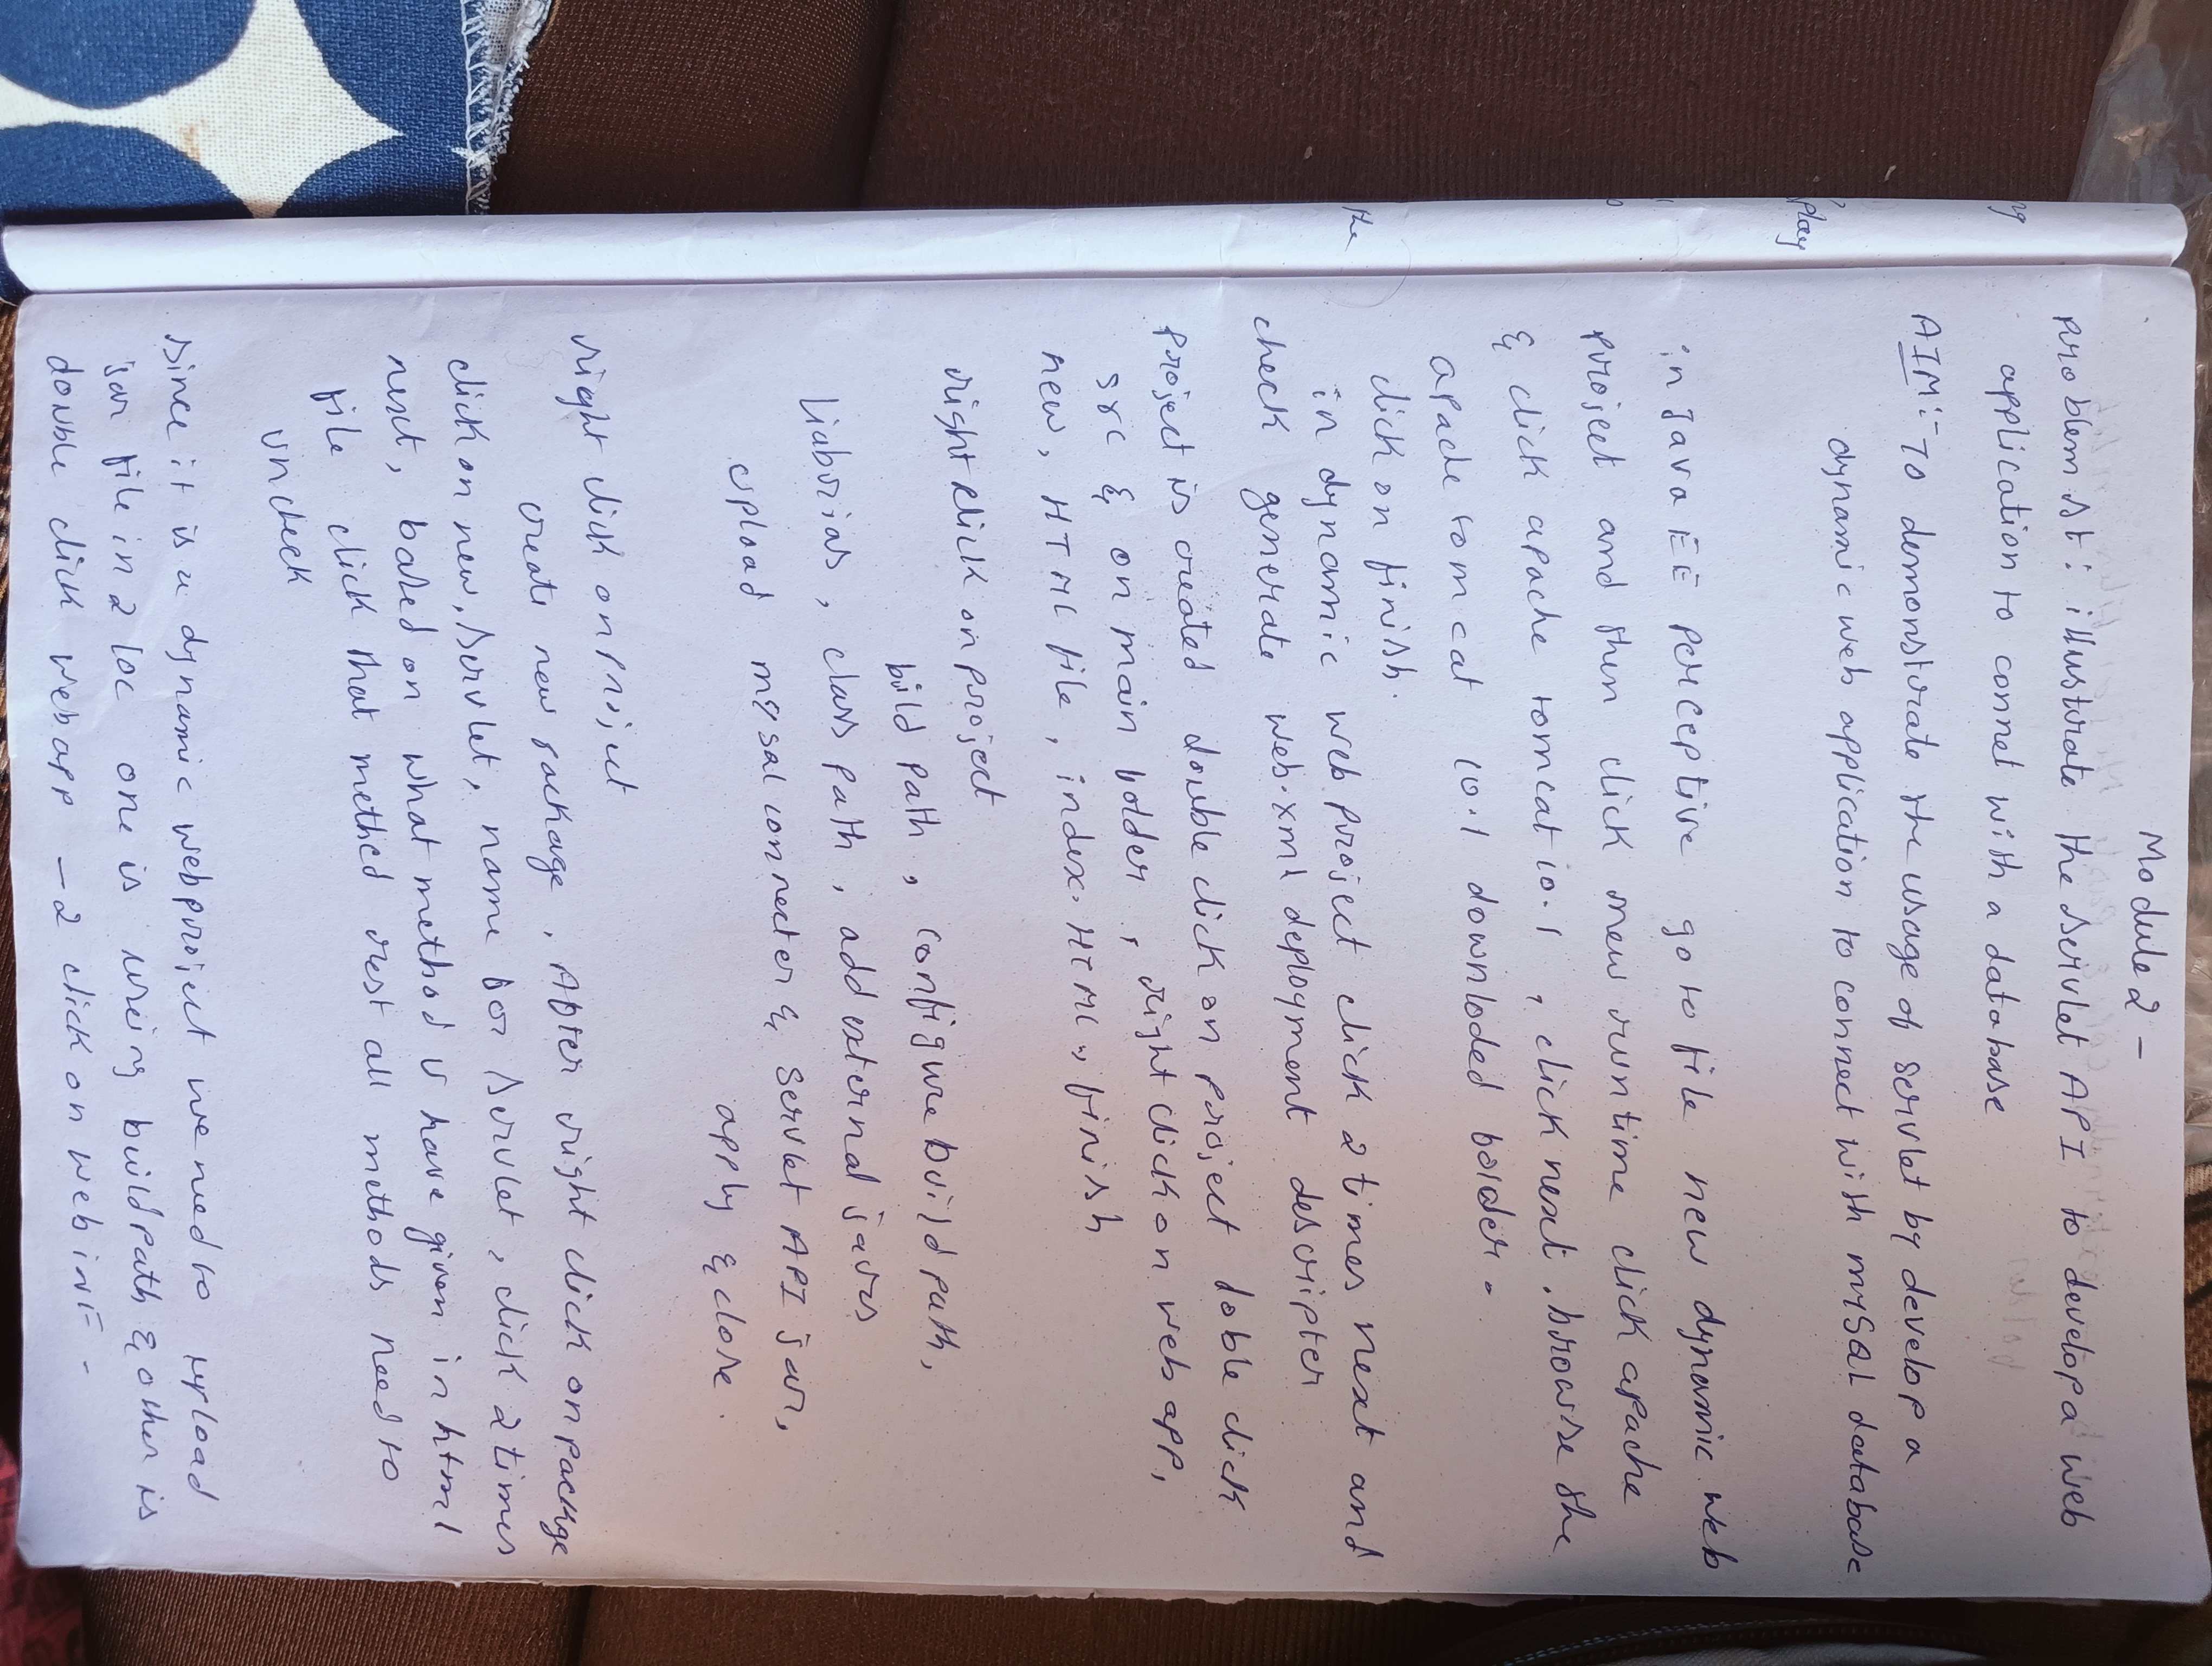 Module 2 -
problem st: illustrate the servlet API to develop a web
application to connet with a database
AIM:- To demonstrate the usage of servlet by develop a
dynamic web application to connect with mySQL database
in Java EE perceptive go to file new dynamic web
project and then click new runtime click apache
& click apache tomcat 10.1, click next, browse the
apache tomcat 10.1 downloded folder.
click on finish.
in dynamic web project click 2 times next and
check generate web.xml deployment descripter
project is created double click on project doble click
src & on main folder, right click on web app,
new, HTML file, index.HTML, finish
right click on project
bild path, configure build path,
liabrias, class path, add external jars
upload mysal connecter & Servlet API jar,
apply & close.
right click on project
create new package, After right click on packge
click on new, servlet, name for servlet, click 2 times
next, based on what method u have given in html
file click that method rest all methods need to
uncheck
since it is a dynamic web project we need to upload
jar file in 2 loc one is using build path & other is
double click webapp - 2 click on web inF -
the
play
ng